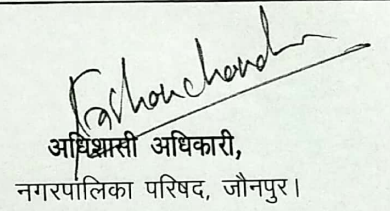 अधिशासी अधिकारी,
नगरपालिका परिषद, जौनपुर।